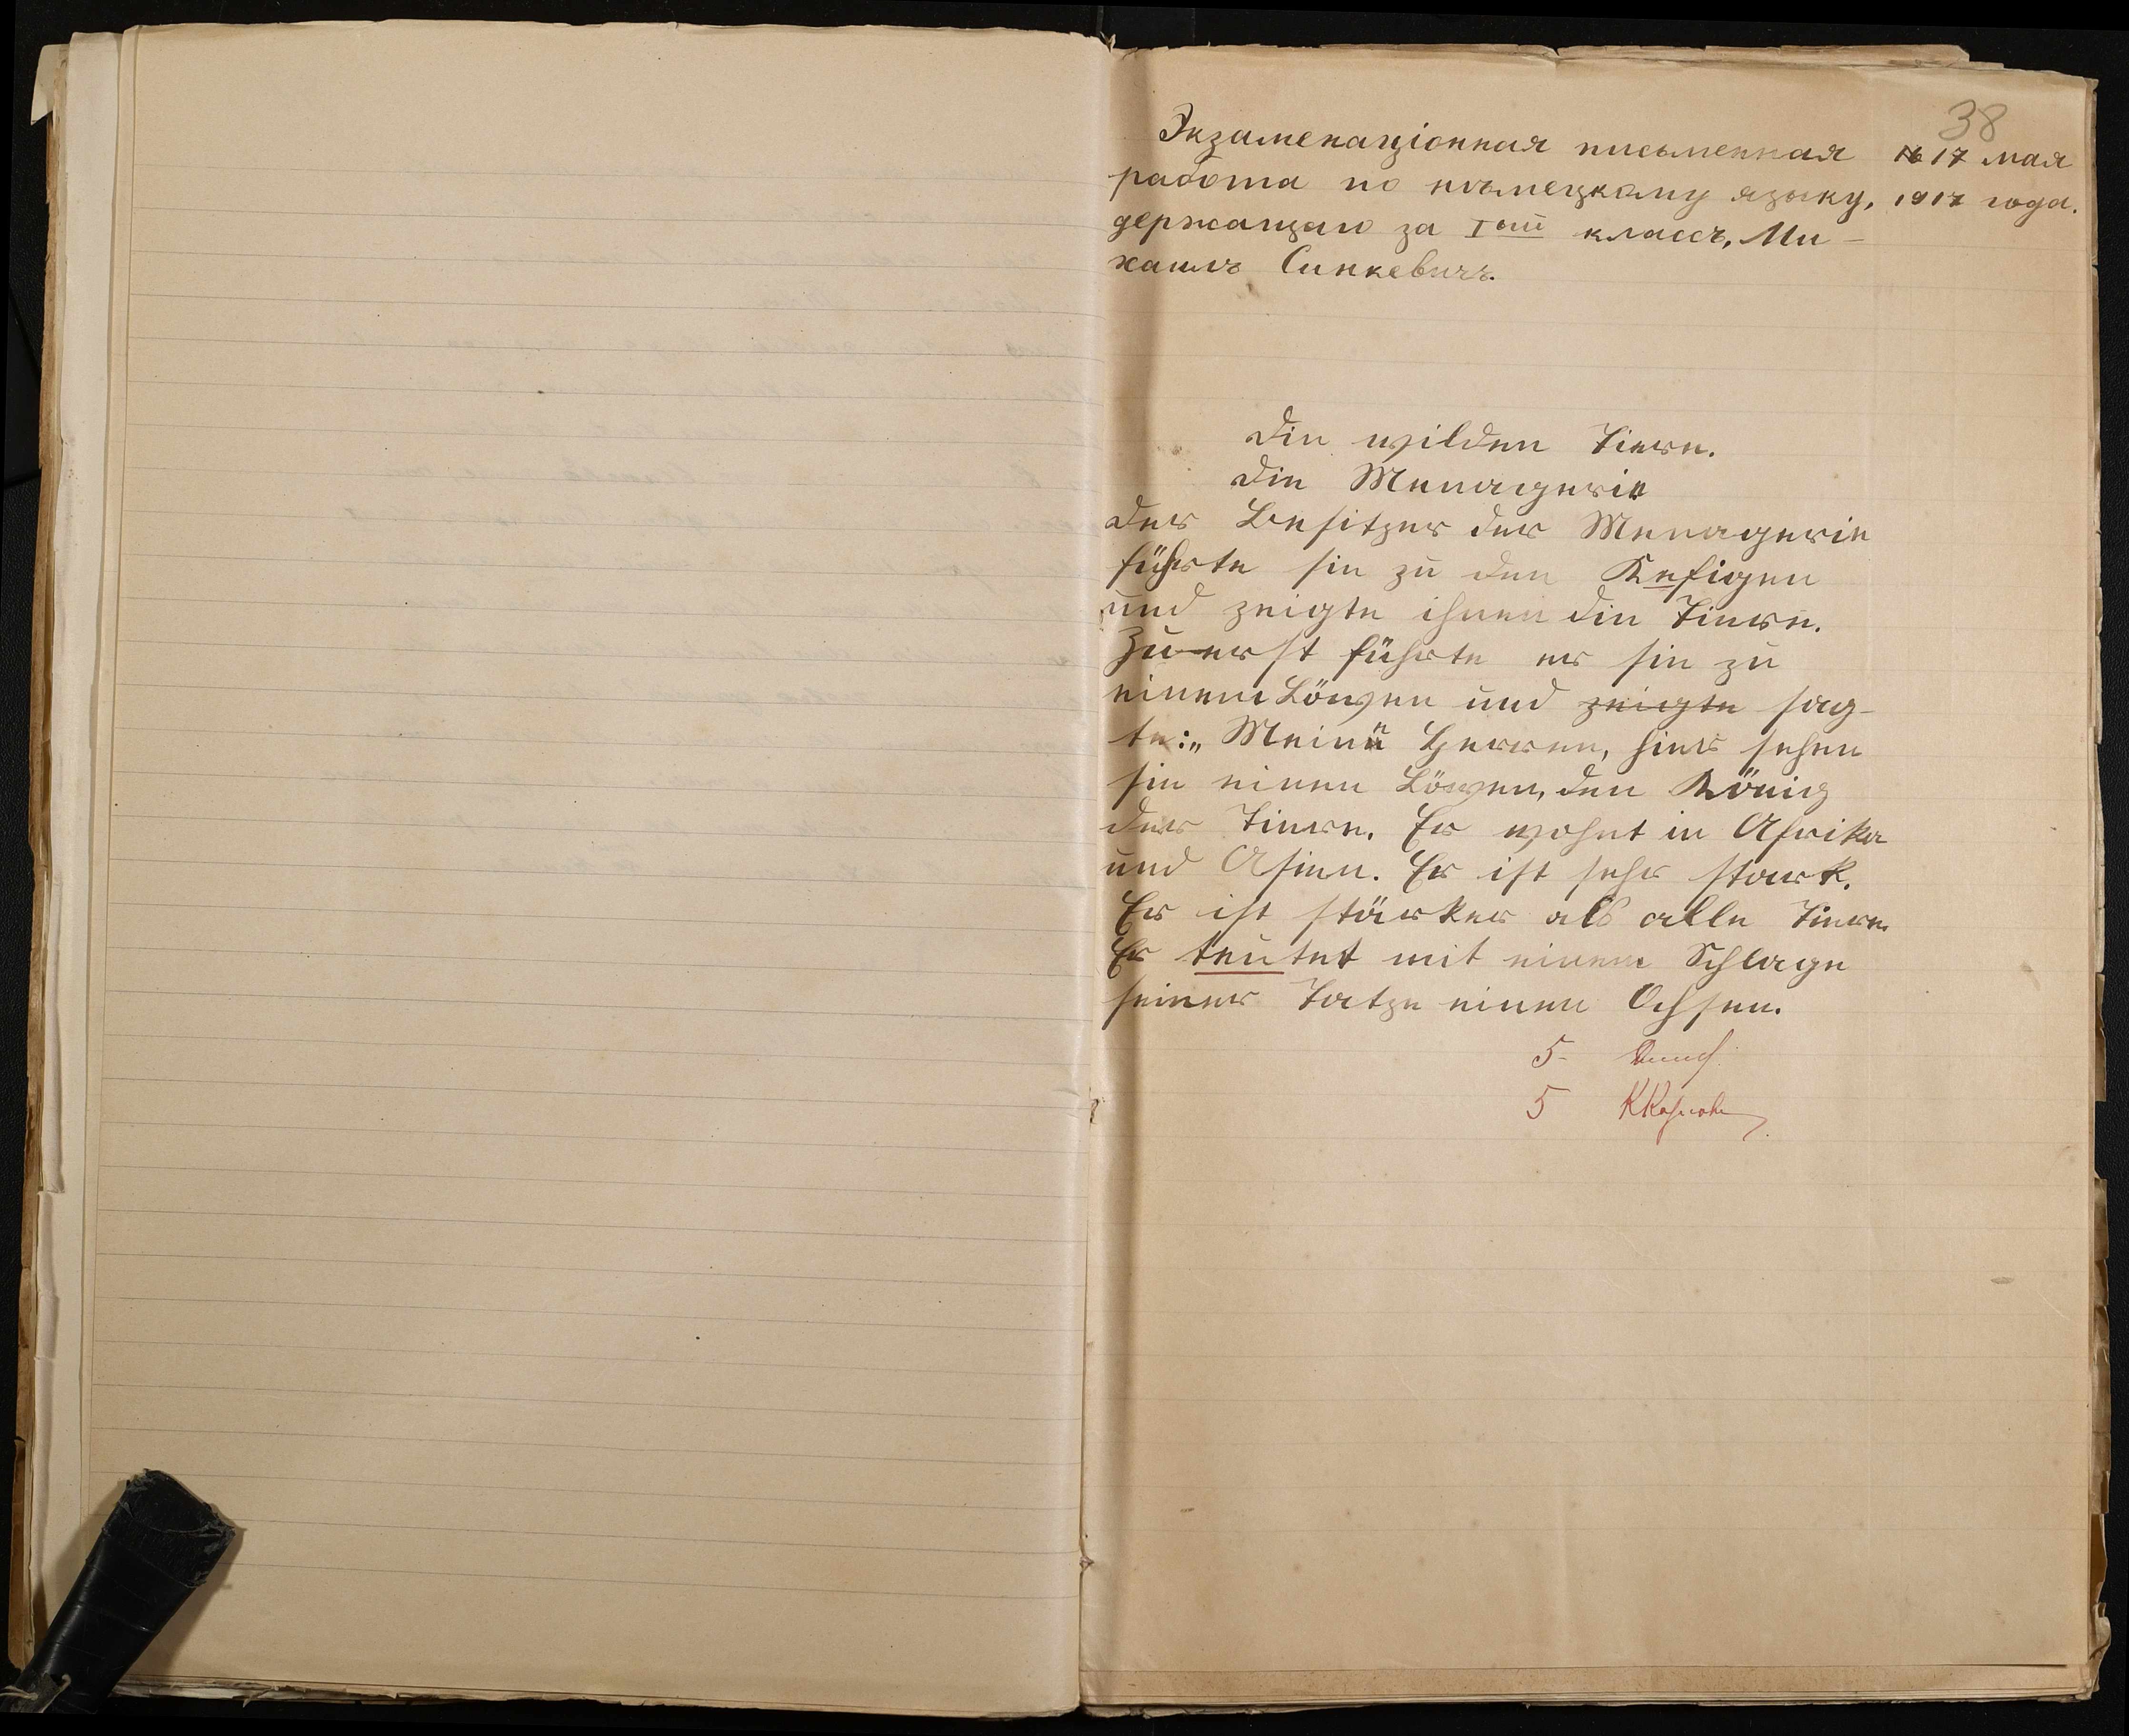 38
Экзаменаціонная письменная 17 мая
работа по нѣмецкому языку, 1917 года.
держащаго за Iый классъ, Ми-
хаилъ Синкевичъ.
Die wilden Tiere.
Die Menagerie
Der Besitzer der Menagerie
führte sie zu den Kefigen
und zeigte ihnen die Tiere.
Zuerst führte er sie zu
einem Löwen und zeigte sag-
te: „Meine Herren, hier sehen
sie einen Löwen, den König
der Tiere. Er wohnt in Afrika
und Asien. Er ist sehr stark.
Er ist stärker als alle Tiere.
Er teutet mit einem Schlage
seiner Tatze einen Ochsen.
5-
5